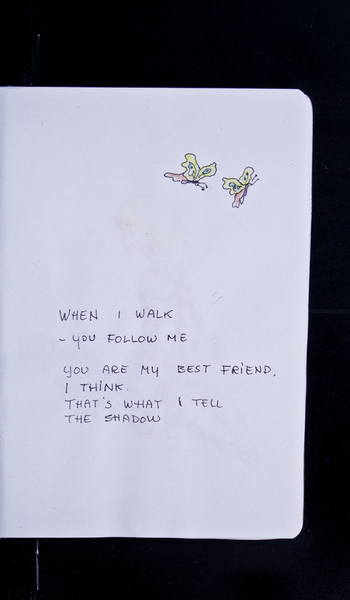 WHEN I WALK
- YOU FOLLOW ME
YOU ARE MY BEST FRIEND,
I THINK.
THAT'S WHAT I TELL
THE SHADOW